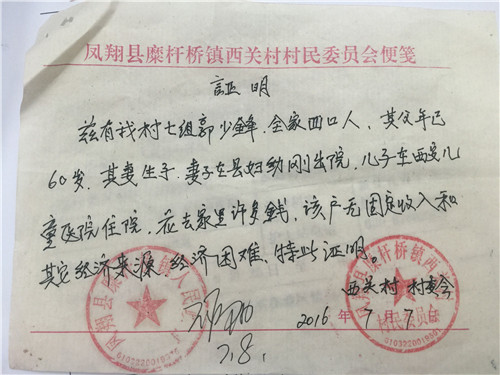 凤翔县糜杆桥镇西关村村民委员会便笺
証明
兹有我村七组郭少鋒.全家四口人,其父年已
60岁.其妻生子.妻子在县妇幼刚出院,儿子在西安儿
童医院住院.花去家里许多銭,该户无固定收入和
其它经济来源 经济困难、特此证明。
西关村 村委会
2016年7月7日
7.8.
凤翔县糜杆桥镇人民
6103220019
凤翔县糜杆桥镇西
村民委员会